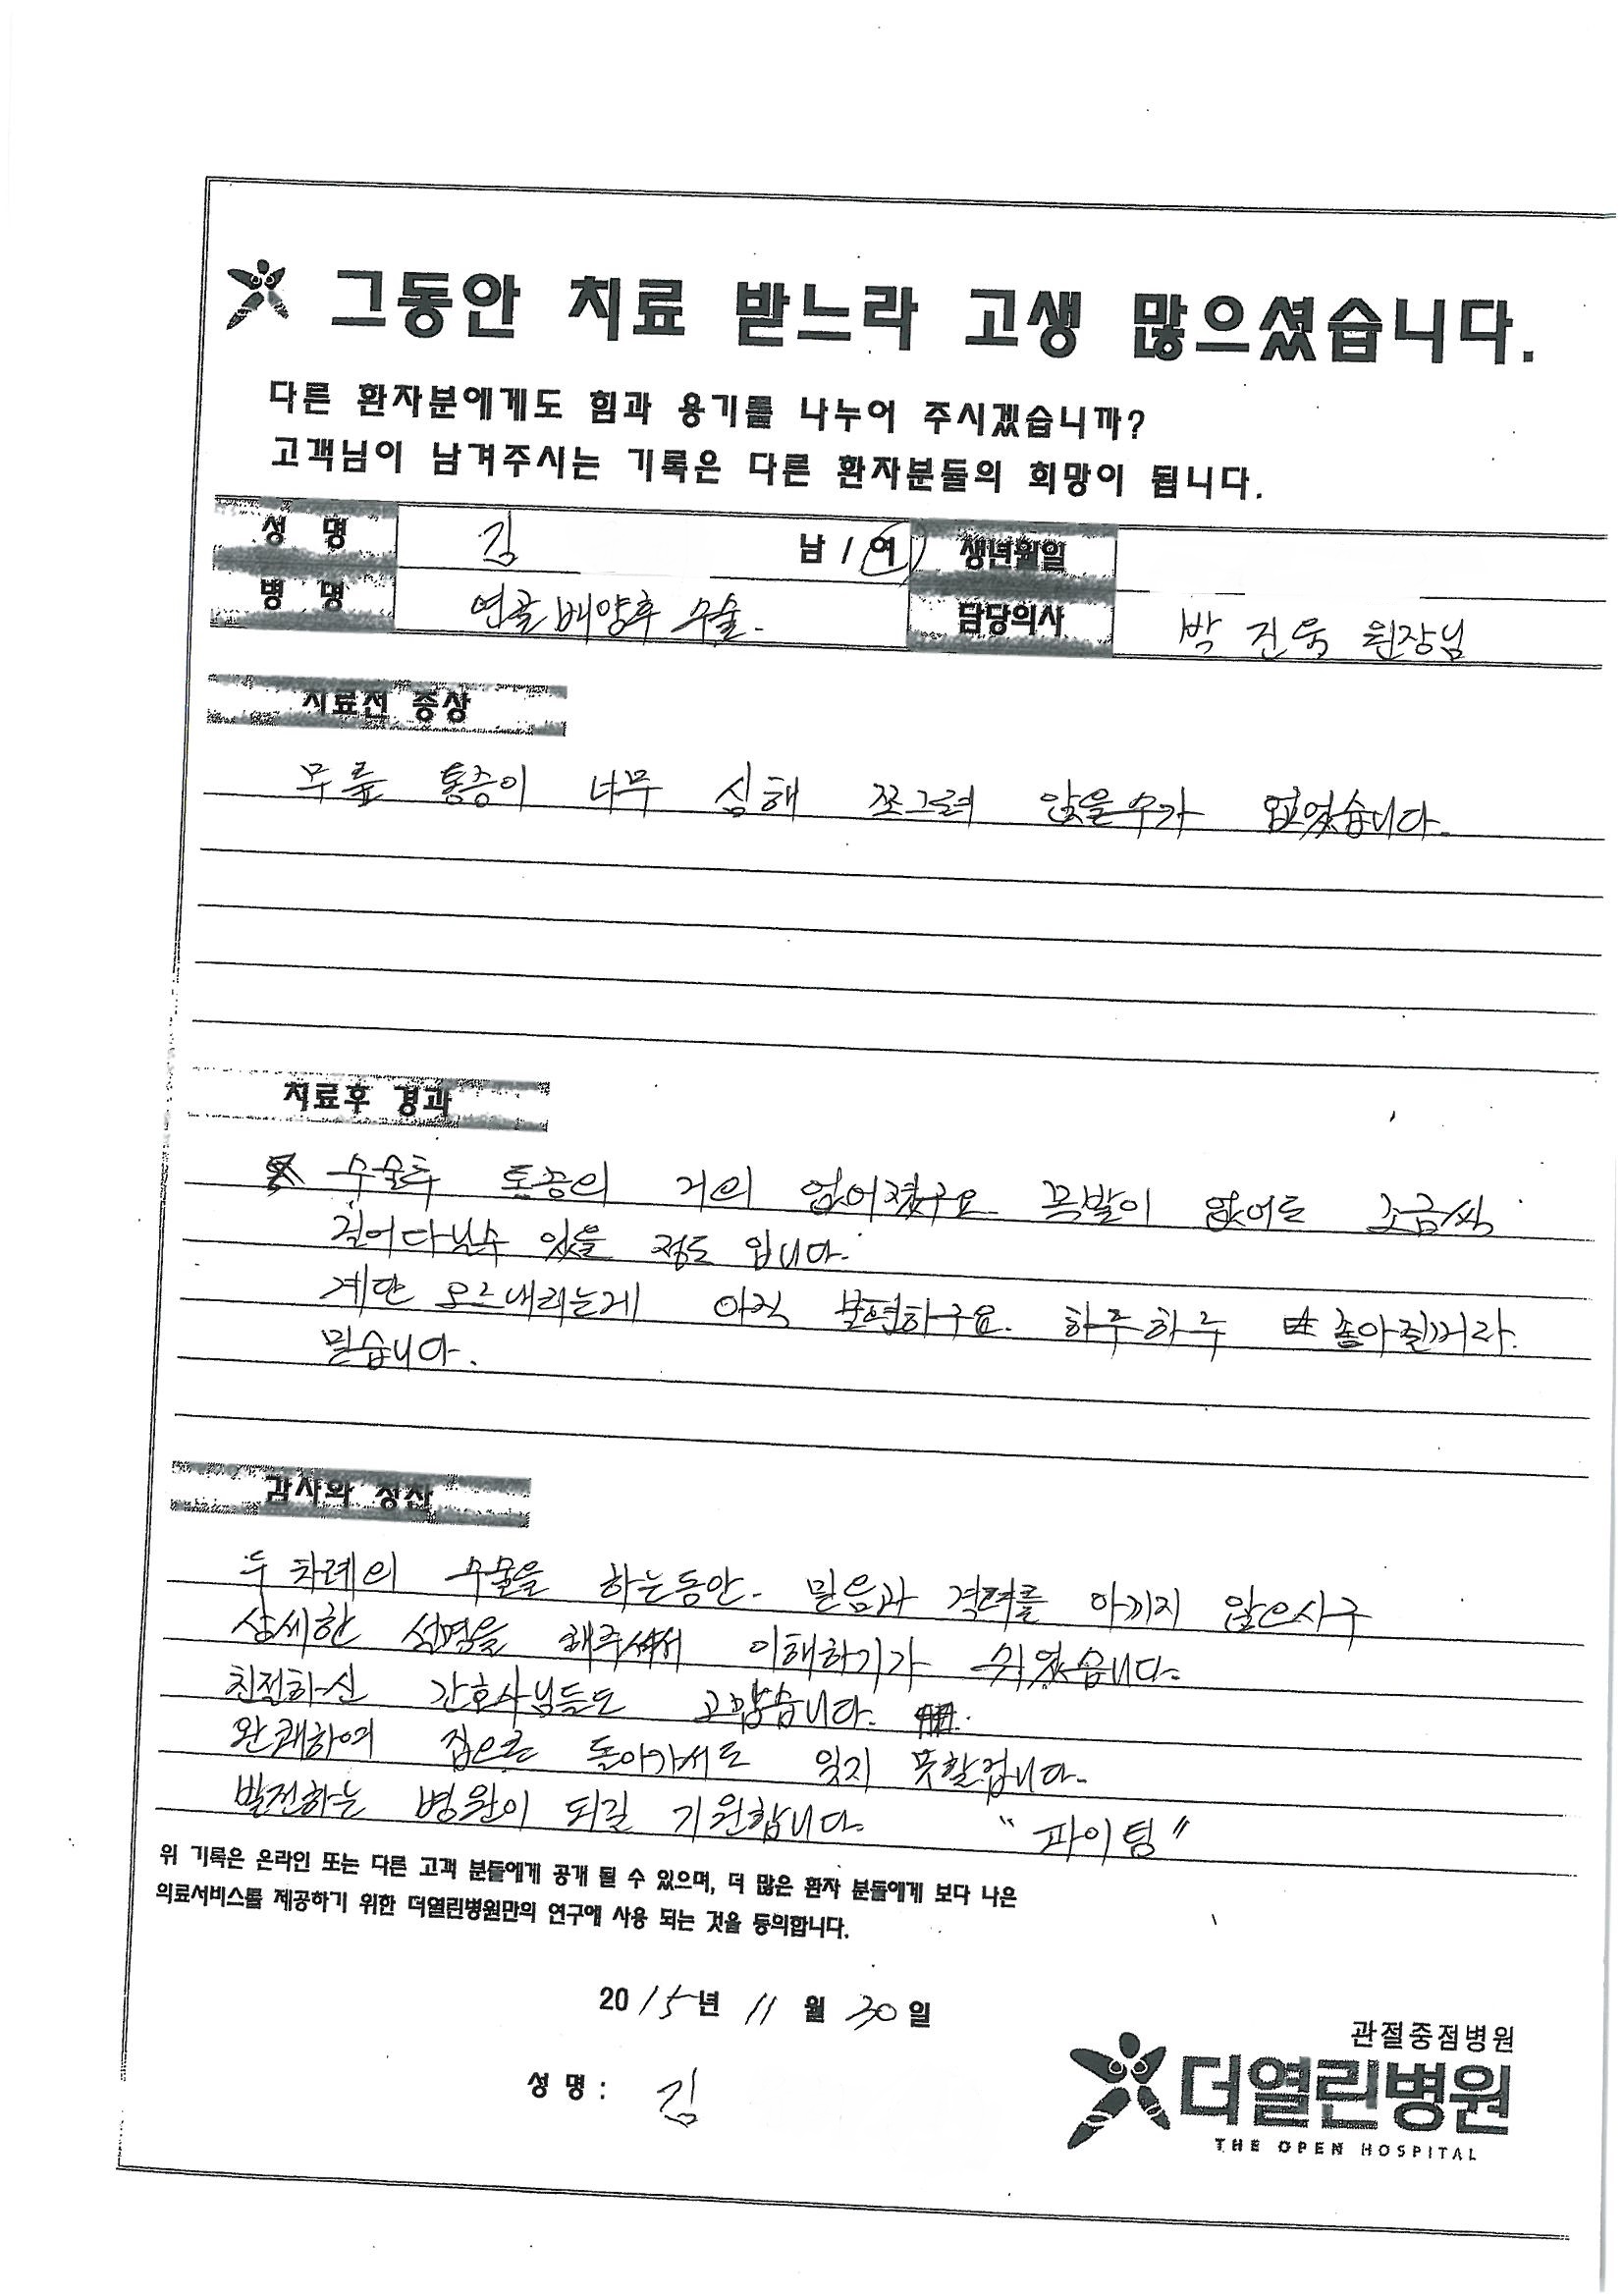 그동안 치료 받느라 고생 많으셨습니다.
다른 환자분에게도 힘과 용기를 나누어 주시겠습니까?
고객님이 남겨주시는 기록은 다른 환자분들의 희망이 됩니다.
성 명 김 남 / 여 생년월일
병 명 연골배양후 수술. 담당의사 박진욱 원장님
치료전 증상
무릎 통증이 너무 심해 쪼그려 앉을수가 없었습니다.
치료후 경과
수술후 통증의 거의 없어졌구요. 목발이 없어도 조금씩
걸어다닐수 있을 정도 입니다.
계단 오르내리는게 아직 불편하구요. 하루하루 좋아질꺼라.
믿습니다.
감사와 칭찬
두차례의 수술을 하는동안. 믿음과 격려를 아끼지 않으시구
상세한 설명을 해주셔서 이해하기가 쉬웠습니다.
친절하신 간호사님들도 고맙습니다.
완쾌하여 집으로 돌아가서도 잊지 못할겁니다.
발전하는 병원이 되길 기원합니다. "파이팅"
위 기록은 온라인 또는 다른 고객 분들에게 공개 될 수 있으며, 더 많은 환자 분들에게 보다 나은
의료서비스를 제공하기 위한 더열린병원만의 연구에 사용 되는 것을 동의합니다.
2015년 11월 30일
성명: 김
관절중점병원
더열린병원
THE OPEN HOSPITAL